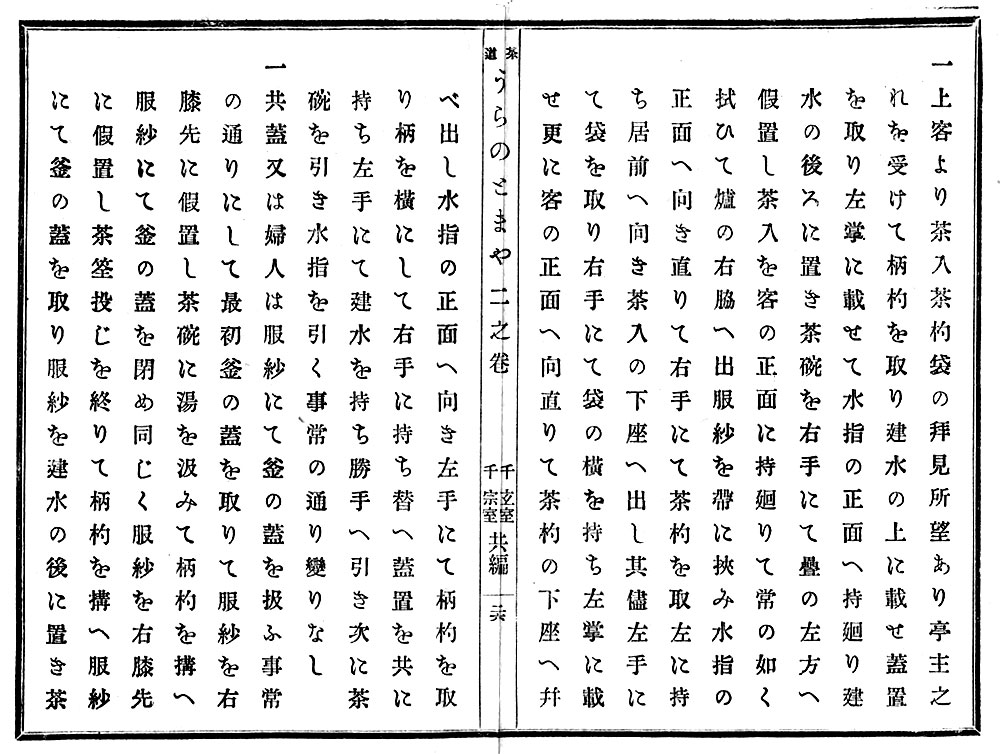 一上客より茶入茶杓袋の拜見所望あり亭主之
れを受けて柄杓を取り建水の上に載せ蓋置
を取り左掌に載せて水指の正面へ持廻り建
水の後ろに置き茶碗を右手にて疊の左方へ
假置し茶入を客の正面に持廻りて常の如く
拭ひて爐の右脇へ出服紗を帶に挾み水指の
正面へ向き直りて右手にて茶杓を取左に持
ち居前へ向き茶入の下座へ出し其儘左手に
て袋を取り右手にて袋の横を持ち左掌に載
せ更に客の正面へ向直りて茶杓の下座へ幷
茶道
うらのとまや二之卷
千玄室
千宗室
共編
二六
べ出し水指の正面へ向き左手にて柄杓を取
り柄を横にして右手に持ち替へ蓋置を共に
持ち左手にて建水を持ち勝手へ引き次に茶
碗を引き水指を引く事常の通り變りなし
一共蓋又は婦人は服紗にて釜の蓋を扱ふ事常
の通りにして最初釜の蓋を取りて服紗を右
膝先に假置し茶碗に湯を汲みて柄杓を搆へ
服紗にて釜の蓋を閉め同じく服紗を右膝先
に假置し茶筌投じを終りて柄杓を搆へ服紗
にて釜の蓋を取り服紗を建水の後に置き茶